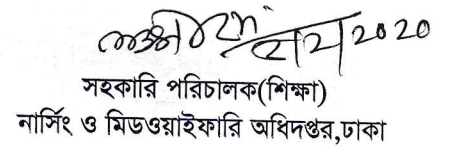 ২০২০
সহকারি পরিচালক(শিক্ষা)
নার্সিং ও মিডওয়াইফারি অধিদপ্তর,ঢাকা